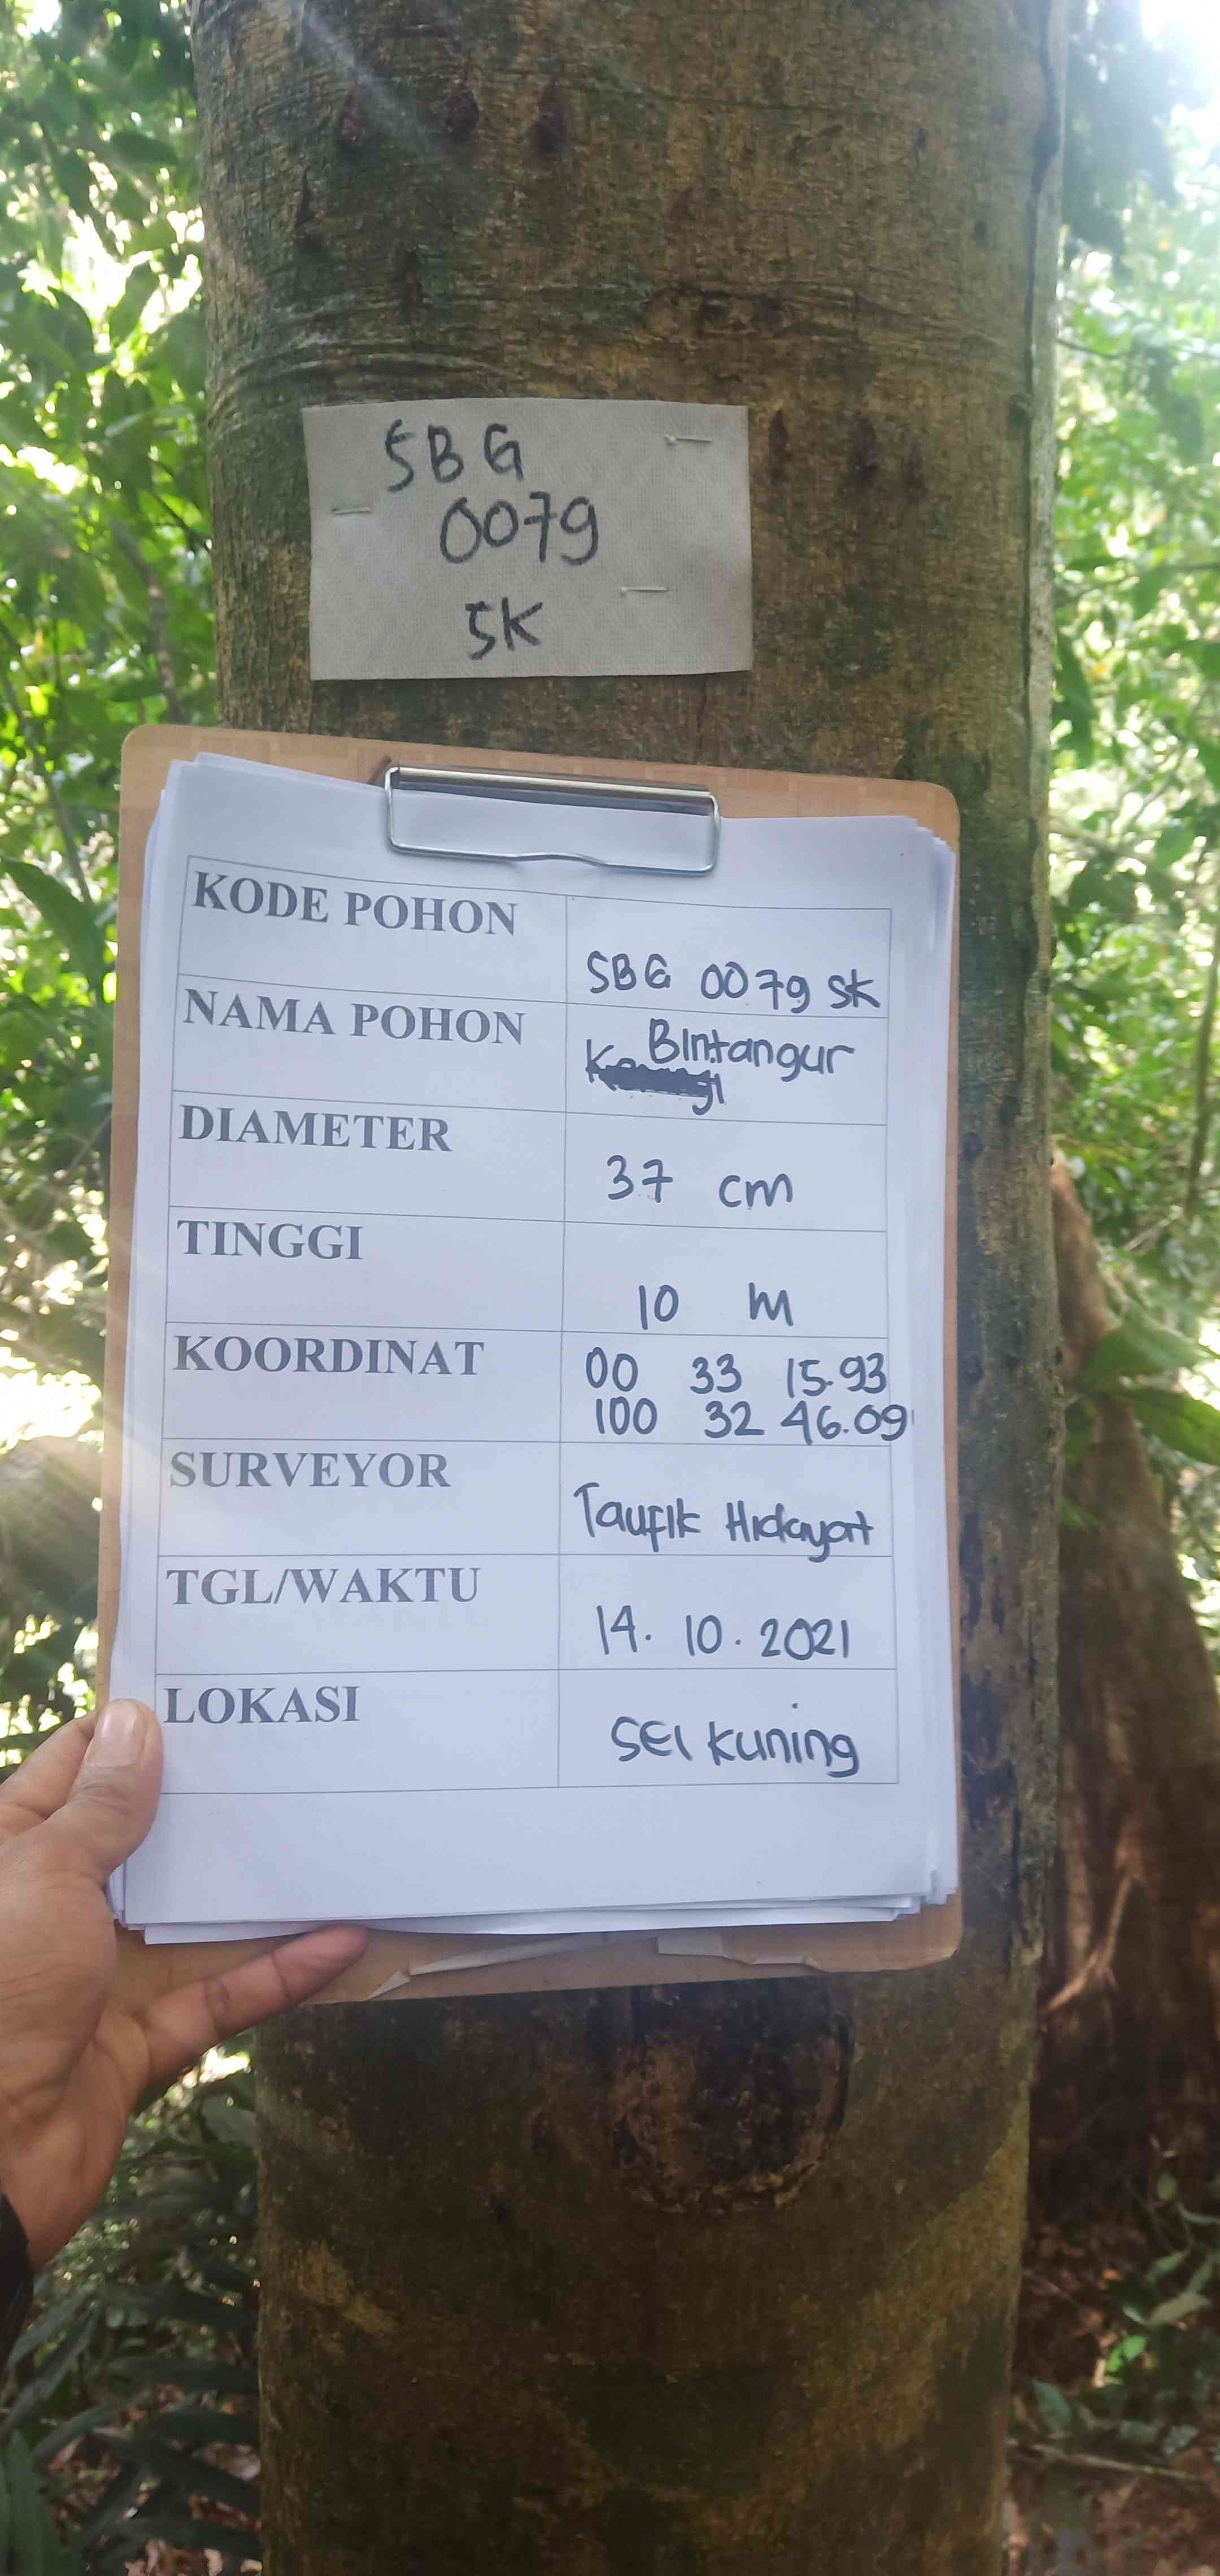 SBG
0079
SK
KODE POHON
SBG 0079 SK
NAMA POHON
Bintangur
DIAMETER
37 cm
TINGGI
10 m
KOORDINAT
00 33 15.93
100 32 46.09
SURVEYOR
Taufik Hidayat
TGL/WAKTU
14. 10. 2021
LOKASI
SEI Kuning